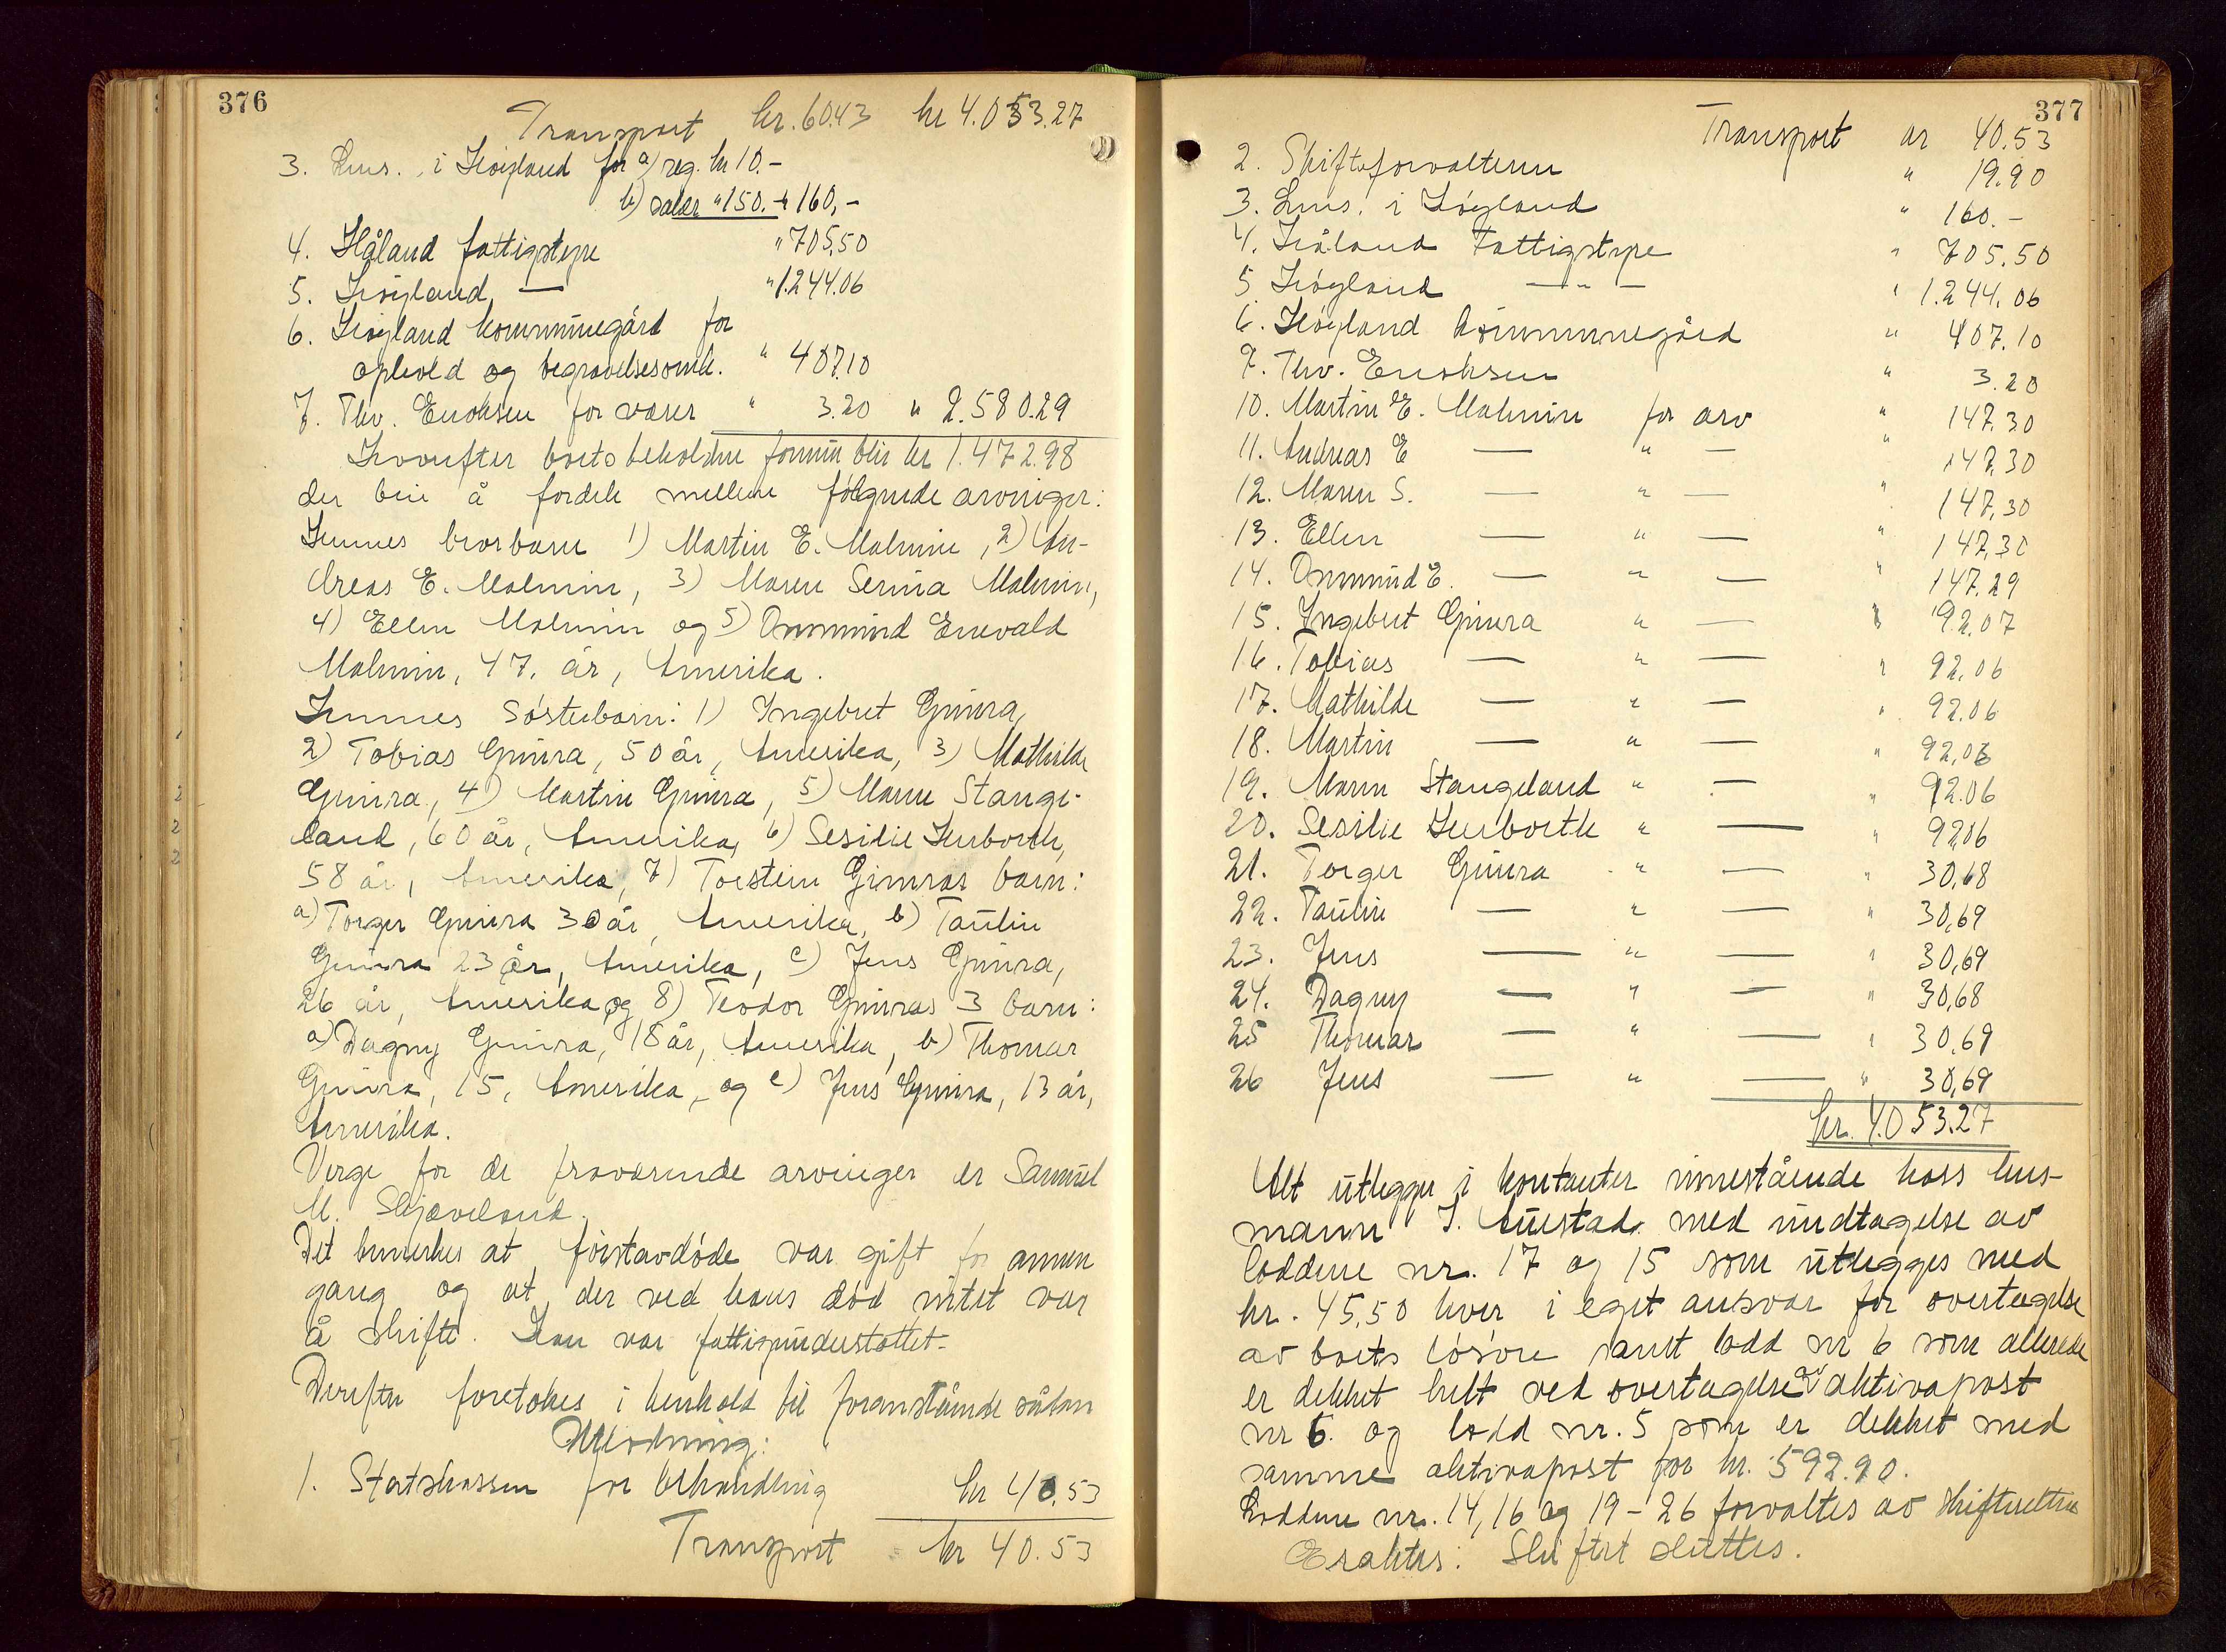 376
Transport kr. 60.43 kr 4.053.27
3. Lens. i Høyland for a) reg. kr 10.-
b) salær " 150.- " 160,-
4. Håland fattigstyre " 705,50
5. Høyland — " 1.244.06
6. Høyland kommunegård for
ophold og begravelsesomk. " 407.10
7. Thv. Enoksen for varer " 3.20 " 2.580.29
Hvorefter boets beholdne formue blir kr 1.472.98
der blir å fordele mellem følgende arvinger:
Hennes brorbarn 1) Martin E. Malmin, 2) An-
dreas E. Malmin, 3) Maren Serina Malmin,
4) Ellen Malmin og 5) Ommund Enevald
Malmin, 47. år, Amerika.
Hennes Søsterbarn: 1) Ingebret Gimra,
2) Tobias Gimra, 50 år, Amerika, 3) Mathilde
Gimra, 4) Martin Gimra, 5) Maren Stange-
land, 60 år, Amerika, 6) Sesilie Hersborth,
58 år, Amerika, 7) Torstein Gimras barn:
a) Torger Gimra 30 år, Amerika, b) Taulin
Gimra 23 år, Amerika, c) Jens Gimra,
26 år, Amerika og 8) Teodor Gimras 3 barn:
a) Dagny Gimra, 18 år, Amerika, b) Thomar
Gimra, 15, Amerika, og c) Jens Gimra, 13 år,
Amerika.
Verge for de fraværende arvinger er Samuel
M. Skjæveland.
Det bemerkes at førstavdøde var gift for annen
gang og at der ved hans død intet var
å skifte. Han var fattigunderstøttet.
Derefter foretokes i henhold til foranstående sådan
Utlodning:
1. Statskassen for behandling kr 40.53
Transport kr 40.53
377
Transport kr 40.53
2. Skifteforvalteren " 19.90
3. Lens. i Høyland " 160.-
4. Håland Fattigstyre " 705.50
5 Høyland — " — " 1.244.06
6. Høyland kommunegård " 407.10
7. Thv. Enoksen " 3.20
10. Martin E. Malmin for arv " 147.30
11. Andreas E — " — " 147.30
12. Maren S. — " — " 147,30
13. Ellen — " — " 147,30
14. Ommund E. — " — " 147.29
15. Ingebret Gimra " — " 92.07
16. Tobias — " — " 92,06
17. Mathilde — " — " 92.06
18. Martin — " — " 92,06
19. Maren Stangeland " — " 92.06
20. Sesilie Hersborth " — " 92,06
21. Torger Gimra " — " 30,68
22. Taulin — " — " 30,69
23. Jens — " — " 30,69
24. Dagny — " — " 30,68
25 Thomar — " — " 30,69
26 Jens — " — " 30,69
kr. 4.053.27
Alt utlegges i kontanter innestående hoss lens-
mann T. Auestad med undtagelse av
loddene nr. 17 og 15 som utlegges med
kr. 45,50 hver i eget ansvar for overtagelse
av boets løsøre samt lodd nr 6 som allerede
er dekket helt ved overtagelse av aktivapost
nr 6. og lodd nr. 5 som er dekket med
samme aktivapost for kr. 592.90.
Loddene nr. 14, 16 og 19 - 26 forvaltes av skifteretten
Esaktes: Skiftet sluttes.